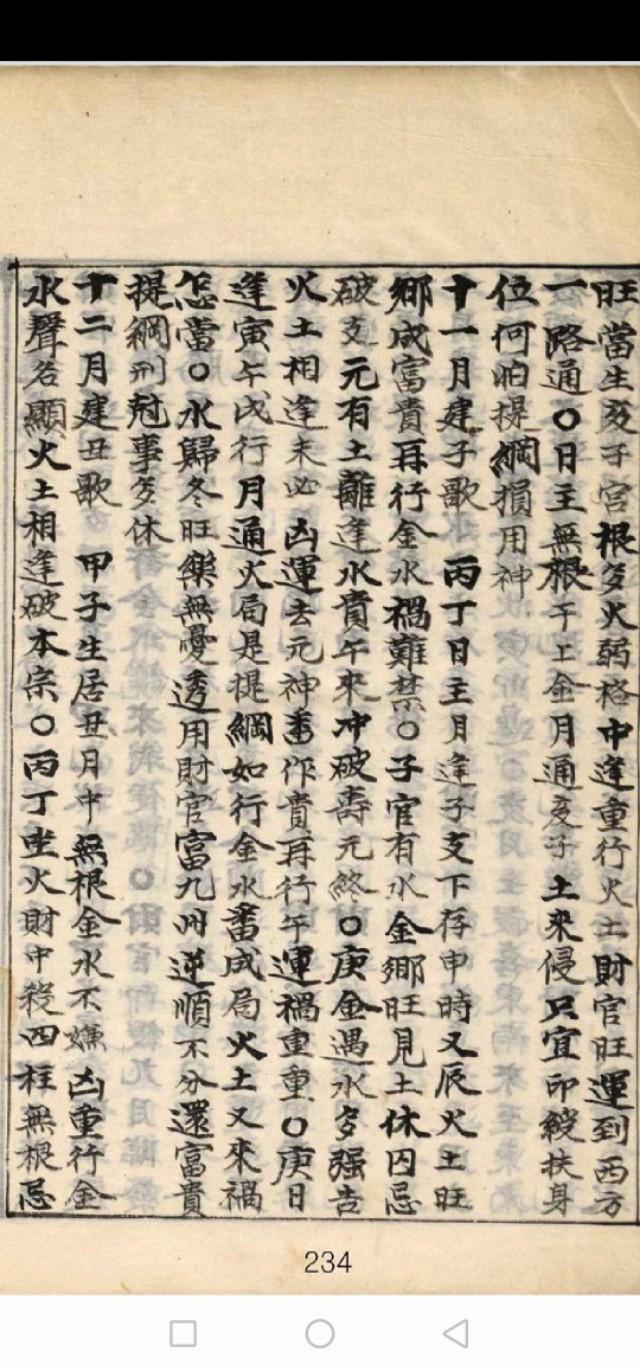 旺當生亥子宮根多火弱格中逢重行火土財官旺運到西方
一路通〇日主無根干上金月通亥子土来侵只宜印綬扶身
位何怕提綱損用神
十一月建子歌 丙丁日主月逢子支下存申時又辰火土旺
鄉成富貴再行金水禍難禁〇子官有水金鄉旺見土休囚忌
破支元有土離逢水貴午來冲破壽元終〇庚金遇水多強吉
火土相逢未必凶運去元神畨作貴再行午運禍重重〇庚日
逢寅午戌行月通火局是提綱如行金水畨成局火土又來禍
怎當〇水歸冬旺樂無憂透用財官富九州逆順不分還富貴
提綱刑尅事多休
十二月建丑歌 甲子生居丑月中無根金水不嫌凶重行金
水聲名顯火土相逢破本宗〇丙丁坐火財中殺四柱無根忌
234